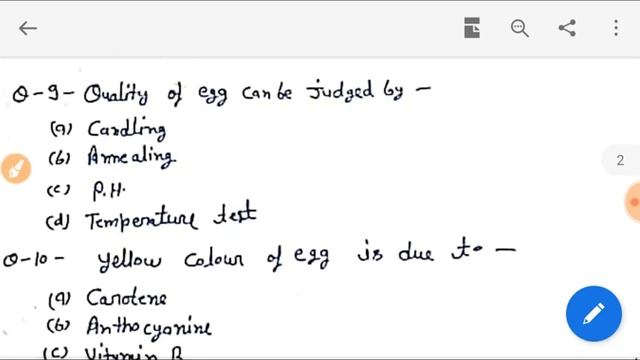 Q-9- Quality of egg can be judged by -
(a) Candling
(b) Annealing
(c) P.H.
(d) Temperature test
2
Q-10- Yellow colour of egg is due to -
(a) Carotene
(b) Anthocyanine
(c) Vitamin B